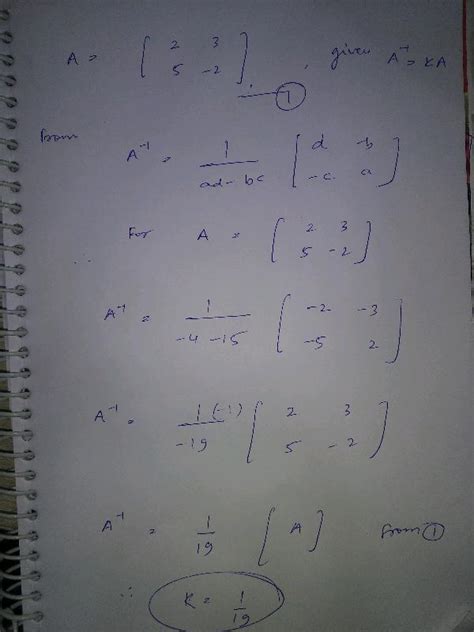 A = [ 2 3 ; 5 -2 ] , given A⁻¹ = KA
①
from
A⁻¹ = 1/(ad-bc) [ d -b ; -c a ]
∴ For A = [ 2 3 ; 5 -2 ]
A⁻¹ = 1/(-4-15) [ -2 -3 ; -5 2 ]
A⁻¹ = 1(-1)/-19 [ 2 3 ; 5 -2 ]
A⁻¹ = 1/19 [ A ] from ①
∴ K = 1/19